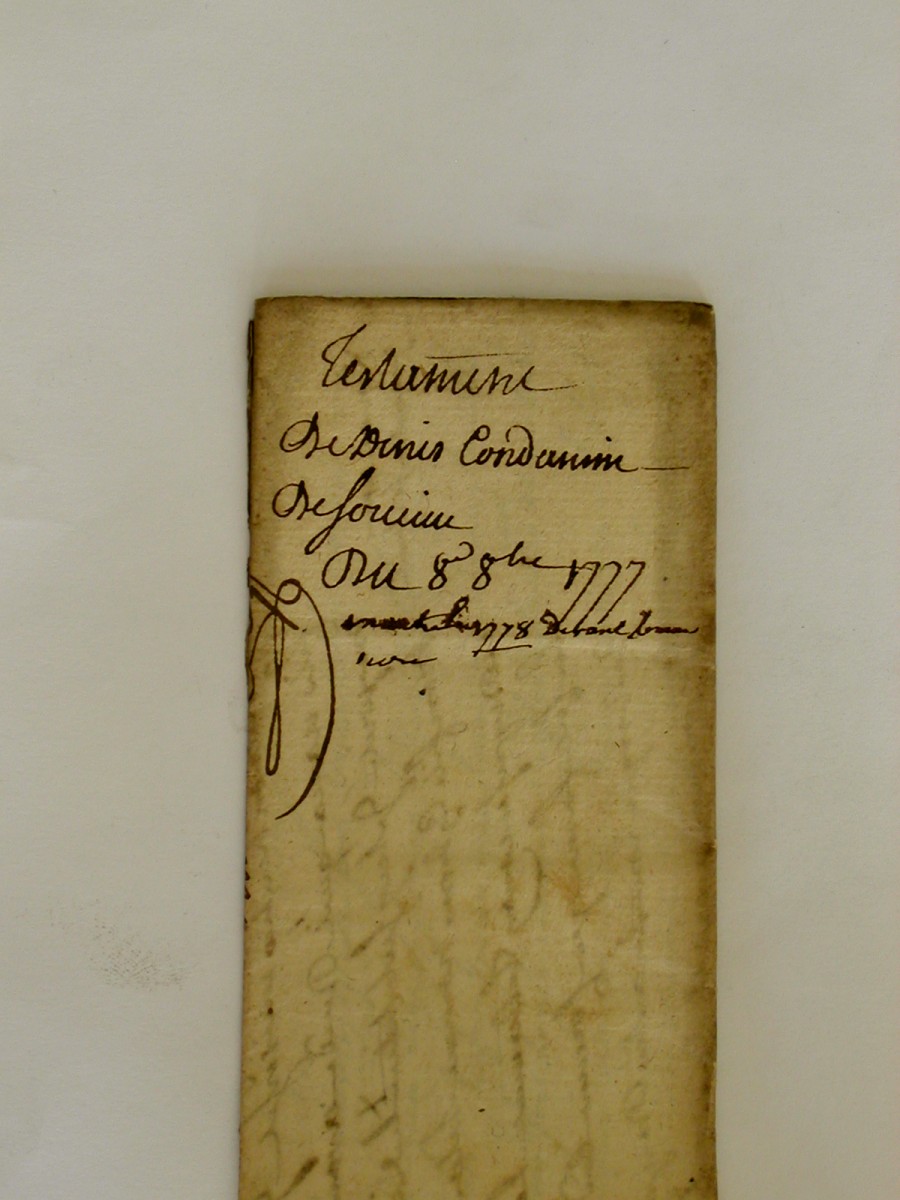 Testament
De Denis Condamin
De souvin
Du 8e 8bre 1777
1778 Devant